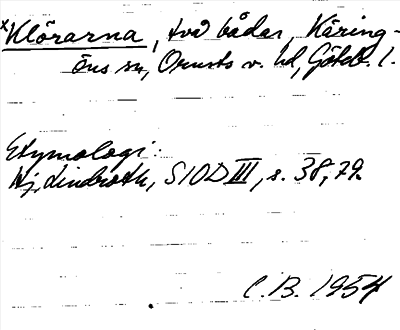 ×Klörarna, två bådar, Käring-
öns sn, Orusts v. hd, Götebl. l.
Etymologi:
Hj. Lindroth, SIOD III, s. 38, 79.
C.B. 1954